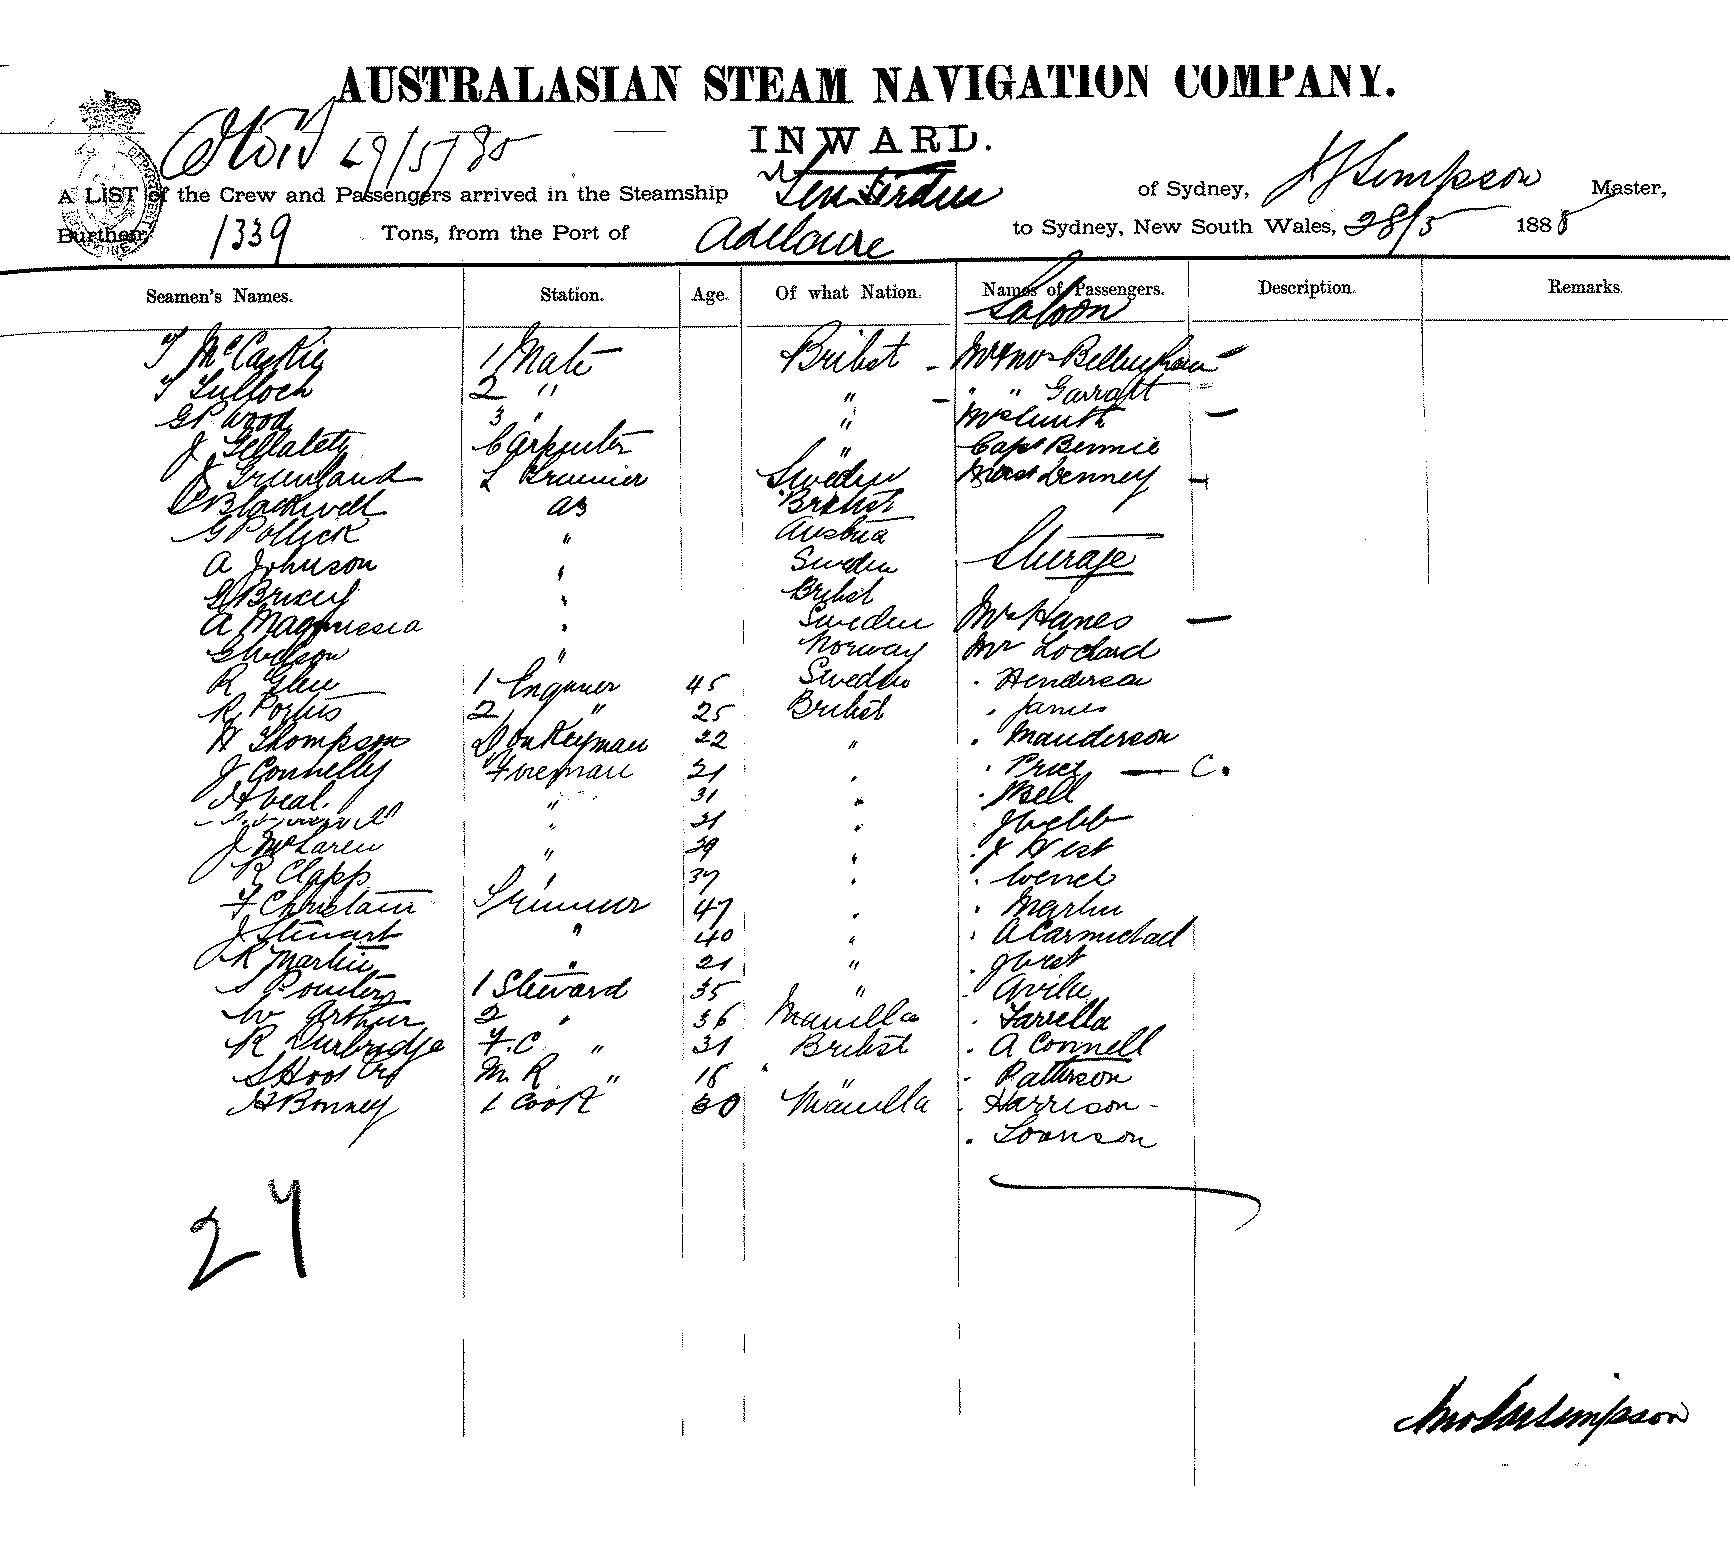 AUSTRALASIAN STEAM NAVIGATION COMPANY.
INWARD.
A LIST of the Crew and Passengers arrived in the Steamship of Sydney, J Simpson Master,
Burthen 1339 Tons, from the Port of Adelaide to Sydney, New South Wales, 28/5 1888
Seamen's Names. Station. Age. Of what Nation. Names of Passengers. Description. Remarks.
Saloon
T McCaskie 1 Mate British Mr & Mrs Bellingham
T Tulloch 2 " " " " Garratt
G P Wood 3 " " Mrs Smith
J Gellately Carpenter " Capt Bennie
J Greenland L Trimmer Sweden Denney
C Blackwell AB British
G Pollick " Austria
A Johnson " Sweden Steerage
British
A Magnesia " Sweden Mr Hanes
G Nelson " Norway Mr Lockard
R Glen 1 Engineer 45 Sweden " Henderson
R Portus 2 " 25 British " James
H Thompson Donkeyman 22 " " Manderson
J Connelly Fireman 21 " " Price — C.
" 31 " " Bell
" 31 " " J Webb
J McLaren " 29 " " J West
R Clapp " 37 " " Wench
F Christain Trimmer 47 " " Martin
J Stewart " 40 " " A Carmichael
R Martin " 21 " " J West
S Poulten 1 Steward 35 "
W Arthur 2 " 36 Manilla " Farrella
R Durbridge F.C " 31 British " A Connell
M. R " 18 " " Patterson
H Bonney 1 Cook 30 Manilla " Harrison
27